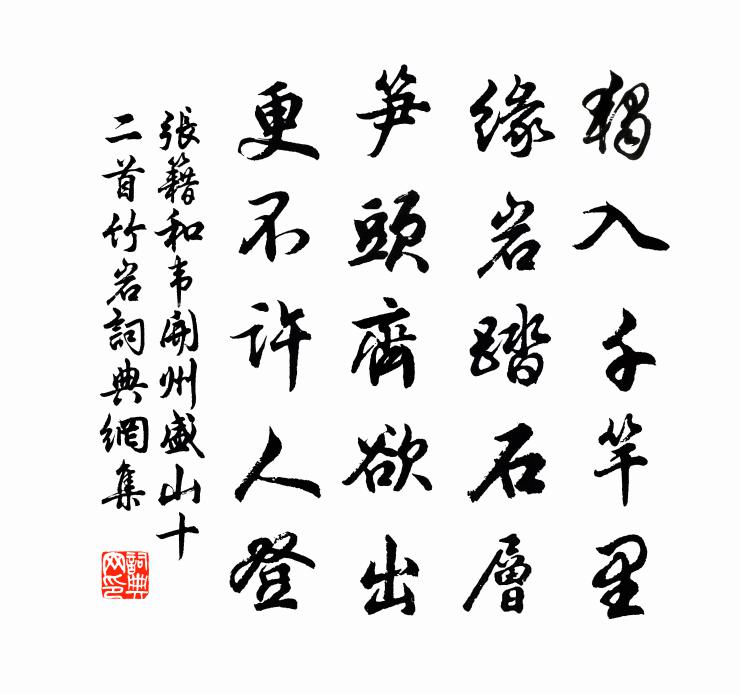 獨入千竿里
緣岩踏石層
笋頭齊欲出
更不許人登
張籍和韦開州盛山十
二首竹岩詞典網集
詞典
网印